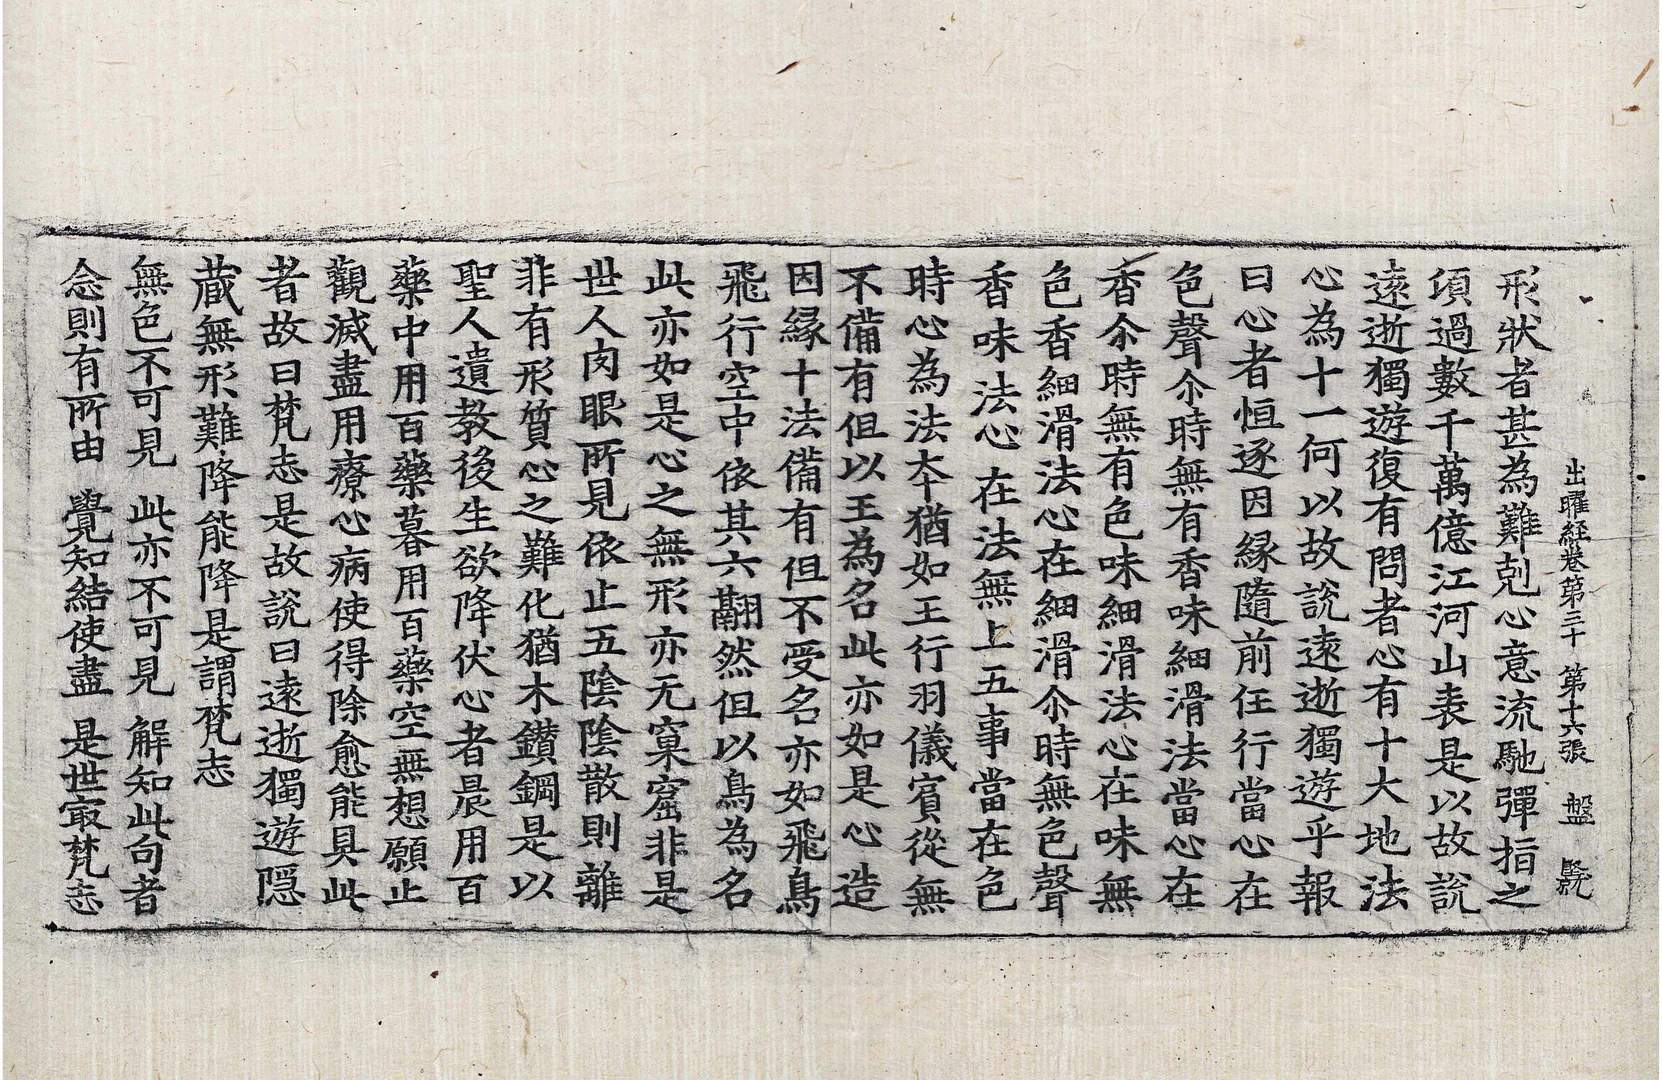 出曜経卷第三十 第十六張 盤
形狀者甚為難剋心意流馳彈指之
項過數千萬億江河山表是以故説
遠逝獨遊復有問者心有十大地法
心為十一何以故説遠逝獨遊乎報
曰心者恒逐因縁隨前任行當心在
色聲尒時無有香味細滑法當心在
香尒時無有色味細滑法心在味無
色香細滑法心在細滑尒時無色聲
香味法心在法無上五事當在色
時心為法本猶如王行羽儀賓從無
不備有但以王為名此亦如是心造
因縁十法備有但不受名亦如飛鳥
飛行空中依其六翮然但以鳥為名
此亦如是心之無形亦无窠窟非是
世人肉眼所見依止五陰陰散則離
非有形質心之難化猶木鑽鋼是以
聖人遺教後生欲降伏心者晨用百
藥中用百藥暮用百藥空無想願止
觀滅盡用療心病使得除愈能具此
者故曰梵志是故説曰遠逝獨遊隱
蔵無形難降能降是謂梵志
無色不可見 此亦不可見 解知此句者
念則有所由 覺知結使盡 是世㝡梵志